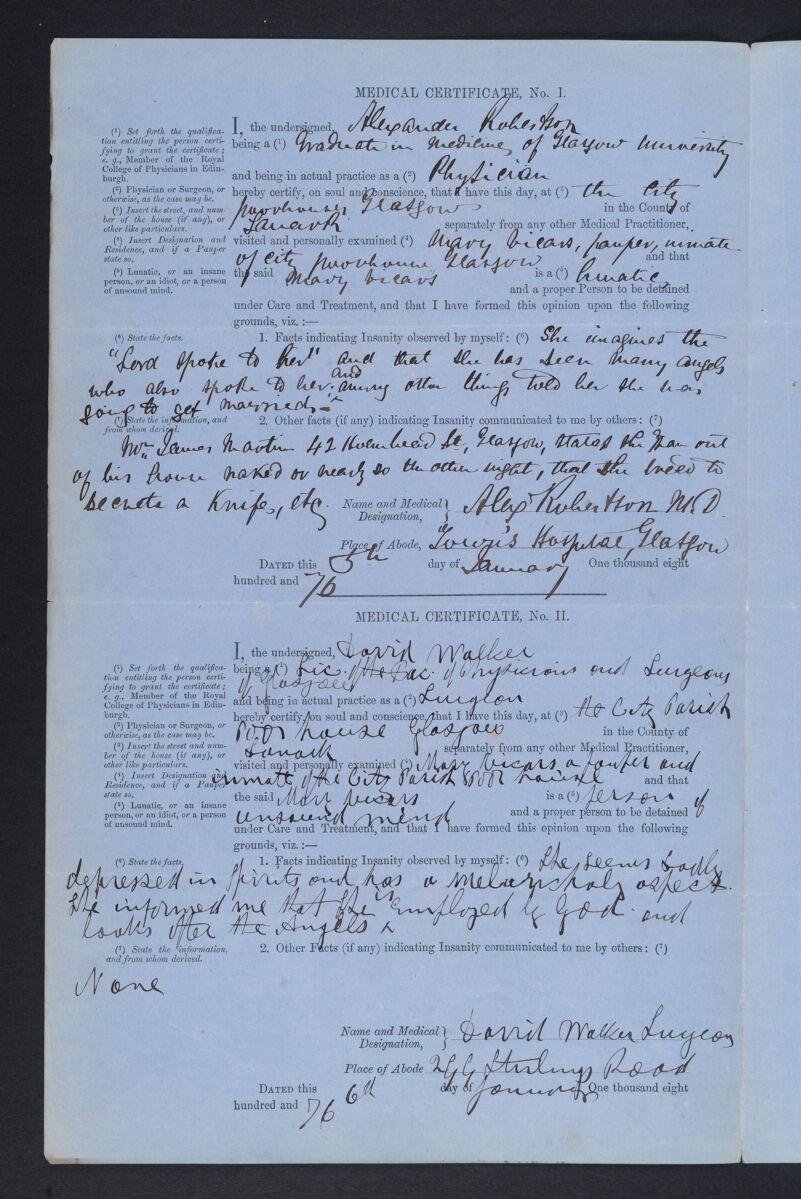 MEDICAL CERTIFICATE, No. I.
(¹) Set forth the qualifica-
tion entitling the person certi-
fying to grant the certificate;
e. g., Member of the Royal
College of Physicians in Edin-
burgh.
(²) Physician or Surgeon, or
otherwise, as the case may be.
(³) Insert the street, and num-
ber of the house (if any), or
other like particulars.
(⁴) Insert Designation and
Residence, and if a Pauper
state so.
(⁵) Lunatic, or an insane
person, or an idiot, or a person
of unsound mind.
I, the undersigned, Alexander Robertson
being a (¹) Graduate in Medicine of Glasgow University
and being in actual practice as a (²) Physician
hereby certify, on soul and conscience, that I have this day, at (³) the City
poorhouse, Glasgow in the County of
Lanark separately from any other Medical Practitioner,
visited and personally examined (⁴) Mary Vicars, pauper, inmate
of City poorhouse Glasgow and that
the said Mary Vicars is a (⁵) lunatic,
and a proper Person to be detained
under Care and Treatment, and that I have formed this opinion upon the following
grounds, viz. :—
(⁶) State the facts.
1. Facts indicating Insanity observed by myself: (⁶) She imagines the
"Lord spoke to her" and that she has seen many angels
who also spoke to her and among other things told her she was
going to get married.
(⁷) State the information, and
from whom derived.
2. Other facts (if any) indicating Insanity communicated to me by others: (⁷)
James Martin 42 Holmhead St, Glasgow, states she ran out
of his house naked or nearly so the other night, that she tried to
secrete a knife, etc.
Name and Medical Designation, Alexr Robertson M.D.
Place of Abode, Town's Hospital, Glasgow
DATED this 5th day of January One thousand eight
hundred and 76
MEDICAL CERTIFICATE, No. II.
(¹) Set forth the qualifica-
tion entitling the person certi-
fying to grant the certificate;
e. g., Member of the Royal
College of Physicians in Edin-
burgh.
(²) Physician or Surgeon, or
otherwise, as the case may be.
(³) Insert the street and num-
ber of the house (if any), or
other like particulars.
(⁴) Insert Designation and
Residence, and if a Pauper
state so.
(⁵) Lunatic, or an insane
person, or an idiot, or a person
of unsound mind.
I, the undersigned, David Walker
being a (¹) Lic. of the Fac. of Physicians and Surgeons
of Glasgow
and being in actual practice as a (²) Surgeon
hereby certify, on soul and conscience, that I have this day, at (³) the City Parish
Poor house Glasgow in the County of
Lanark separately from any other Medical Practitioner,
visited and personally examined (⁴) Mary Vicars a pauper and
inmate of the City Parish Poor house and that
the said Mary Vicars is a (⁵) person of
unsound mind and a proper person to be detained
under Care and Treatment, and that I have formed this opinion upon the following
grounds, viz. :—
(⁶) State the facts.
1. Facts indicating Insanity observed by myself: (⁶) She seems sadly
depressed in spirits and has a melancholy aspect.
She informed me that she is Employed by God and
looks after the Angels
(⁷) State the information,
and from whom derived.
2. Other Facts (if any) indicating Insanity communicated to me by others: (⁷)
None
Name and Medical Designation, David Walker Surgeon
Place of Abode Stirlings Road
DATED this 6th day of January One thousand eight
hundred and 76